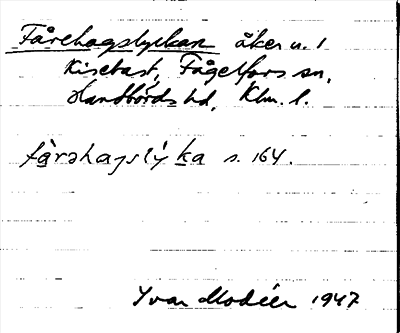 Fårehagslyckan åker u. 1
Kisebast, Fågelfors sn,
Handbörds hd, Klm. l.
fårəhagslýka s. 164.
Ivar Modéer 1947